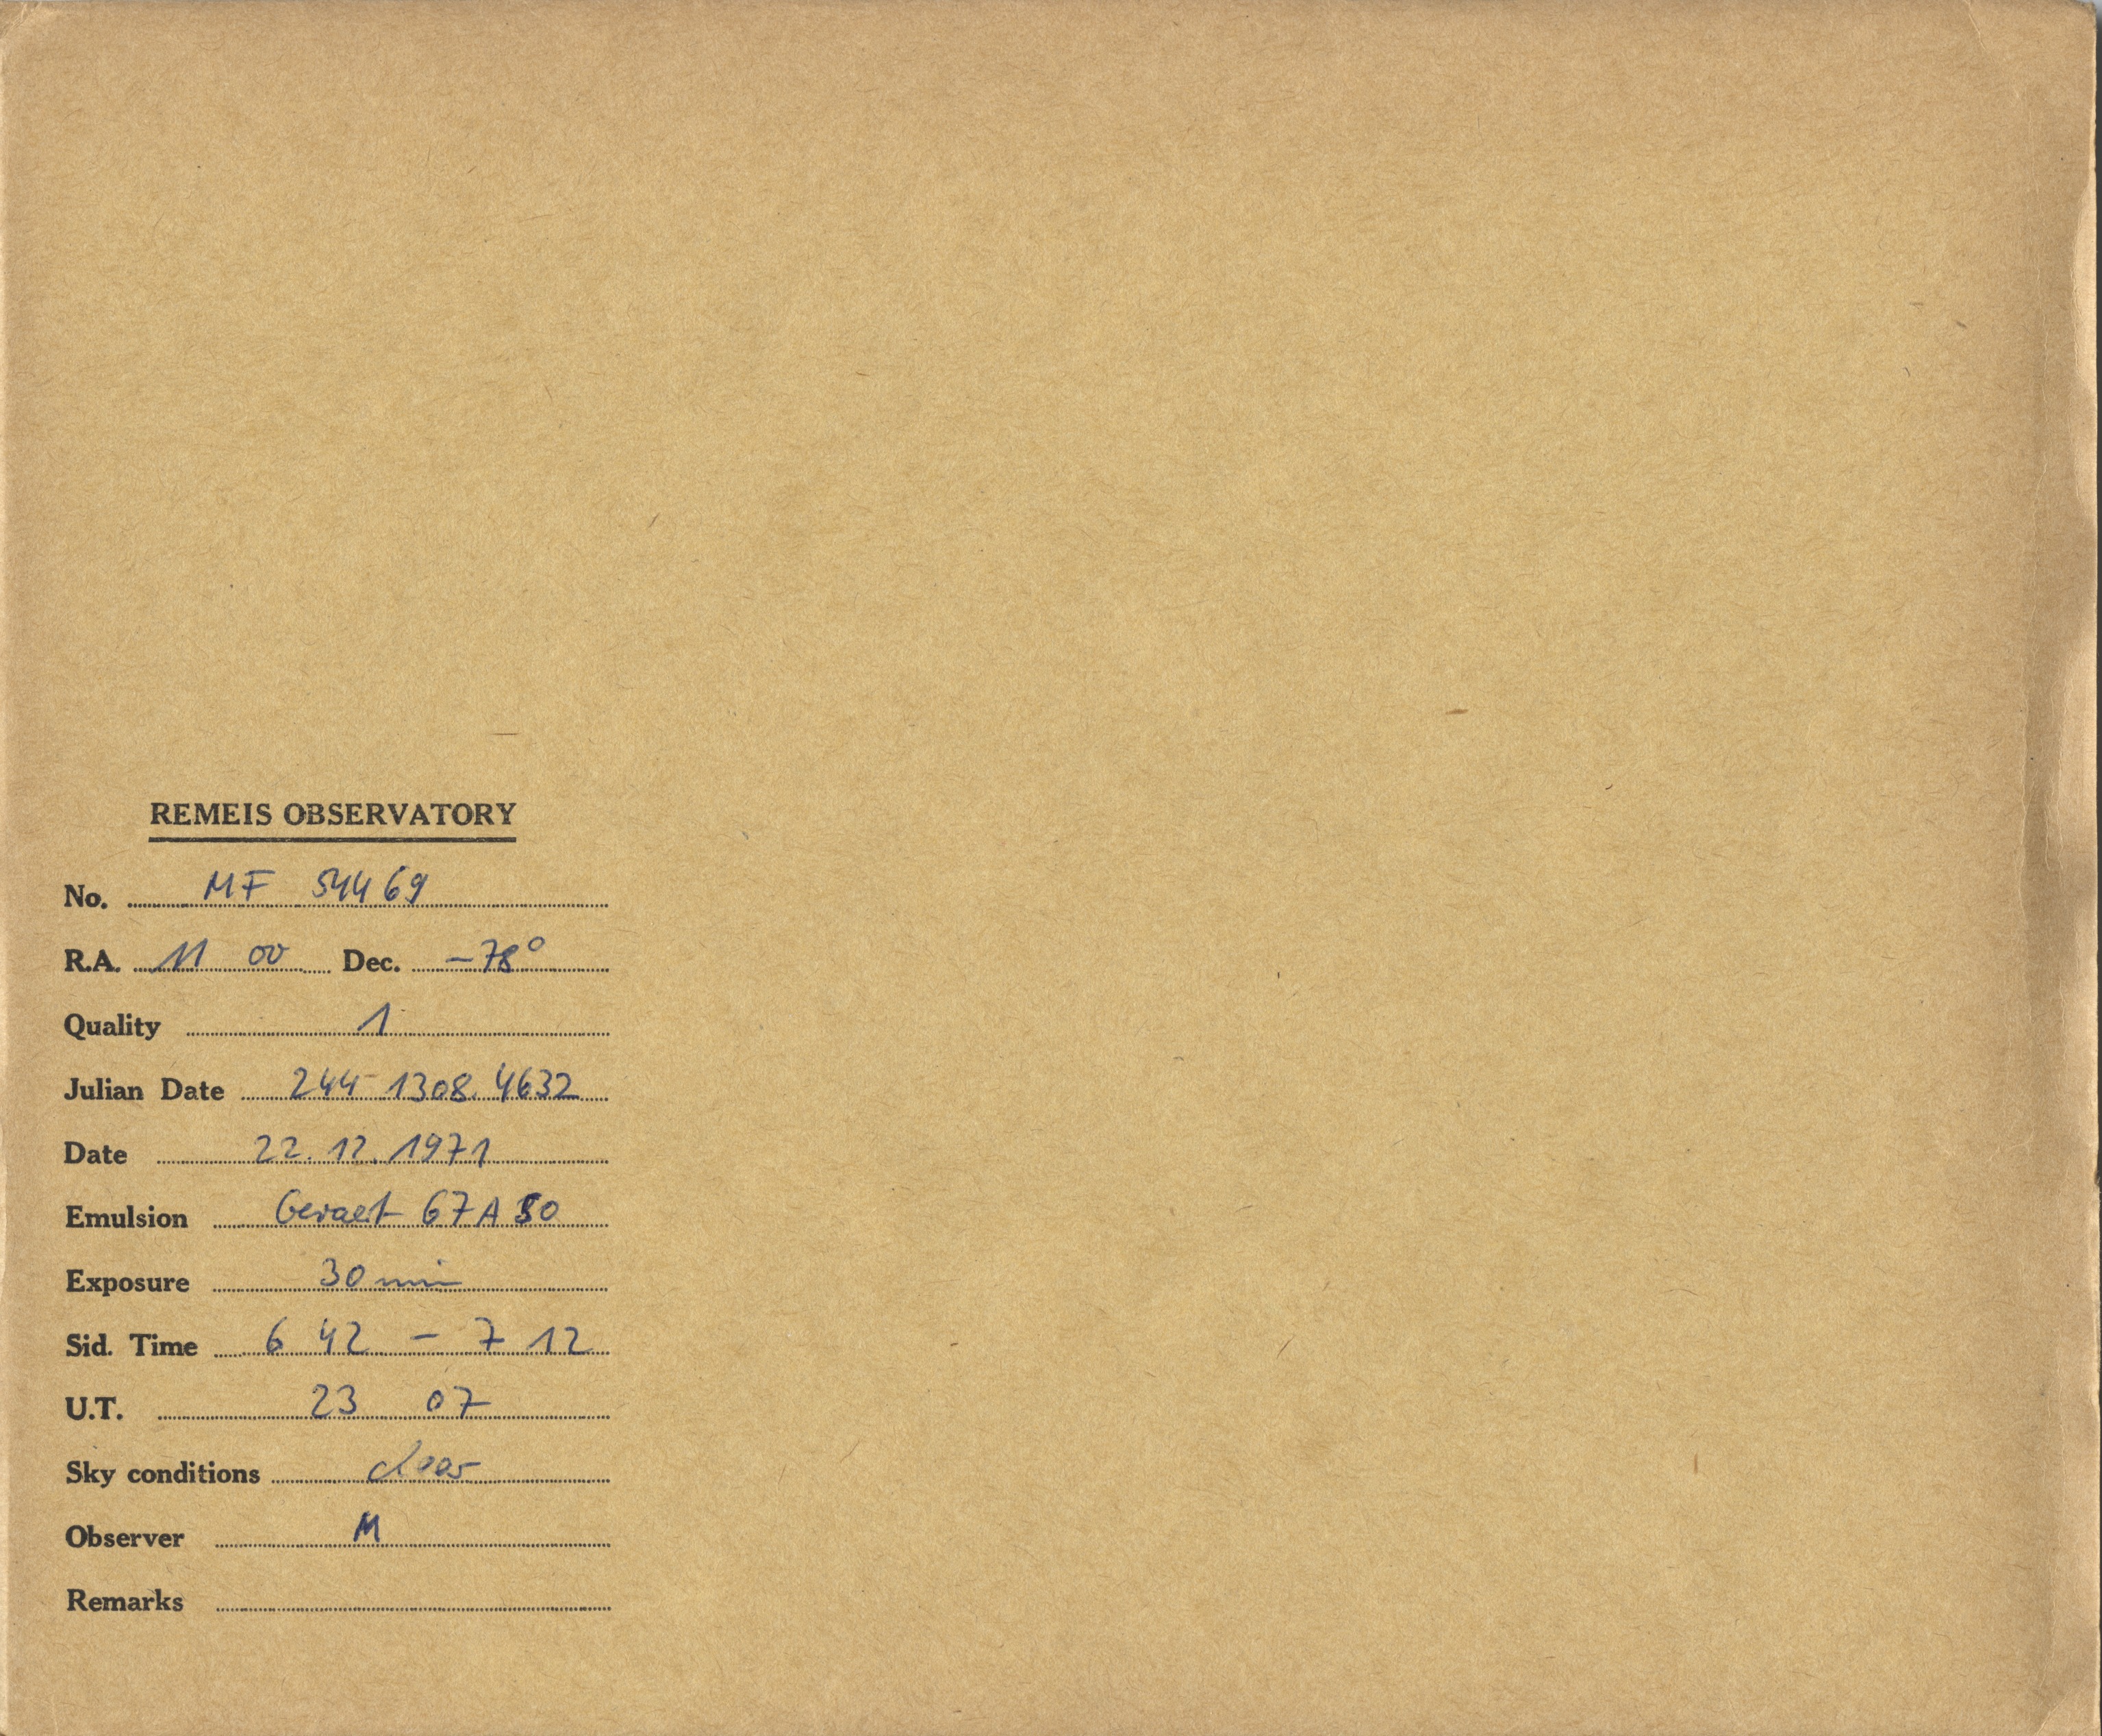 REMEIS OBSERVATORY
No. MF 54469
R.A. 11 00 Dec. -78°
Quality 1
Julian Date 244 1308.4632
Date 22.12.1971
Emulsion Gevaert 67A50
Exposure 30 min
Sid. Time 6 42 - 7 12
U.T. 23 07
Sky conditions clear
Observer M
Remarks